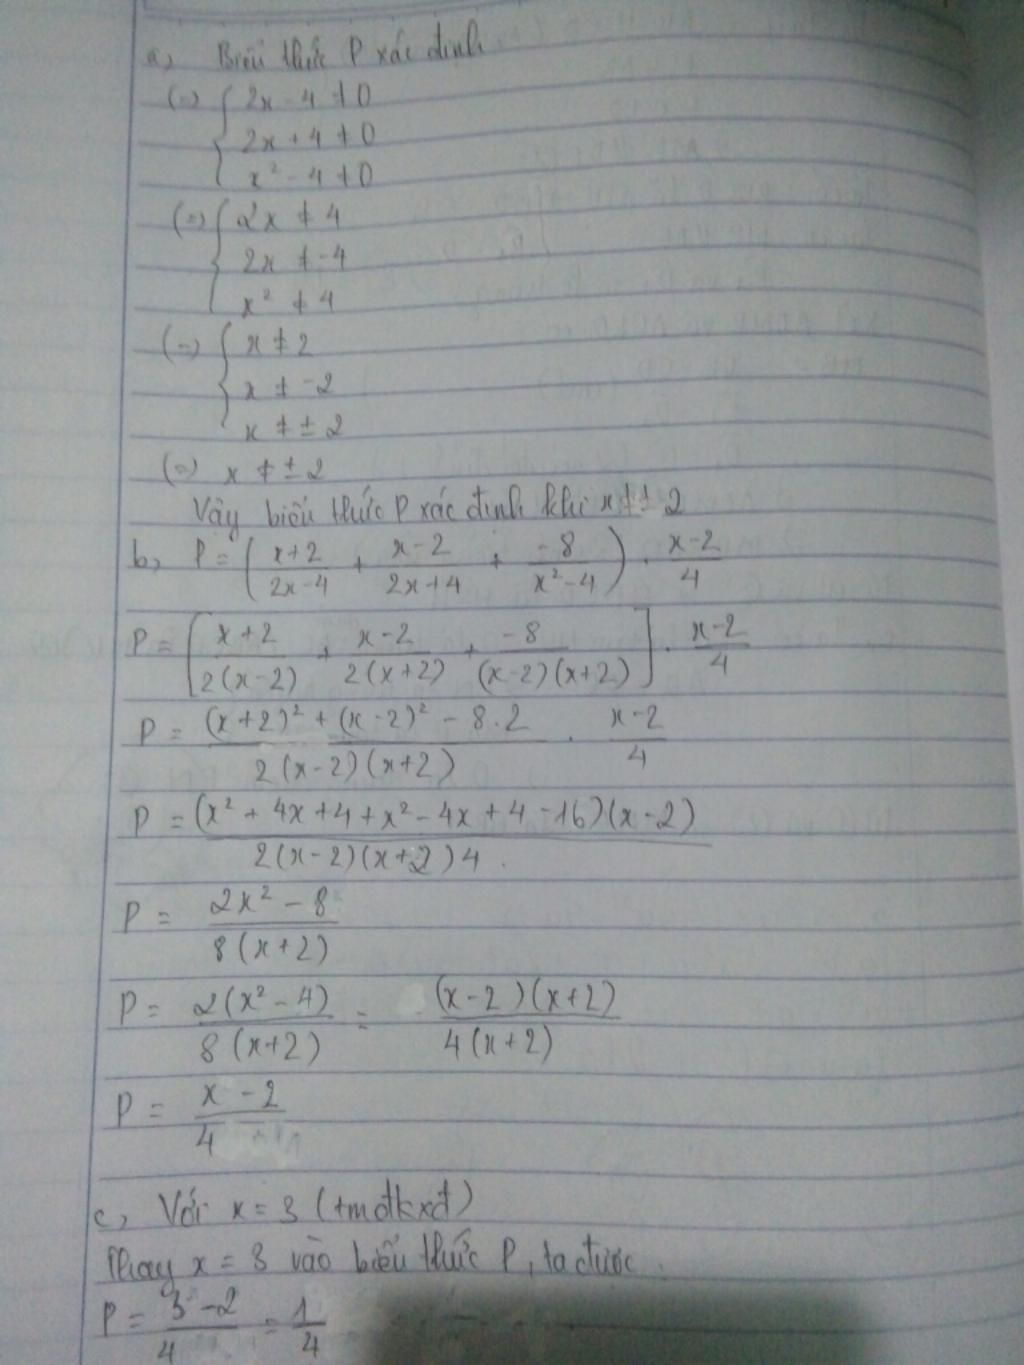 a, Biểu thức P xác định
(=) { 2x - 4 ≠ 0
2x + 4 ≠ 0
x² - 4 ≠ 0
(=) { 2x ≠ 4
2x ≠ -4
x² ≠ 4
(=) { x ≠ 2
x ≠ -2
x ≠ ± 2
(=) x ≠ ± 2
Vậy biểu thức P xác định khi x ≠ ± 2
b, P = ( (x+2)/(2x-4) + (x-2)/(2x+4) + (-8)/(x²-4) ) . (x-2)/4
P = [ (x+2)/(2(x-2)) + (x-2)/(2(x+2)) + (-8)/((x-2)(x+2)) ] . (x-2)/4
P = ((x+2)² + (x-2)² - 8.2)/(2(x-2)(x+2)) . (x-2)/4
P = ((x² + 4x + 4 + x² - 4x + 4 - 16)(x-2))/(2(x-2)(x+2)4)
P = (2x² - 8)/(8(x+2))
P = (2(x² - 4))/(8(x+2)) = ((x-2)(x+2))/(4(x+2))
P = (x - 2)/4
c, Với x = 3 (tmđkxđ)
Thay x = 3 vào biểu thức P, ta được
P = (3 - 2)/4 = 1/4